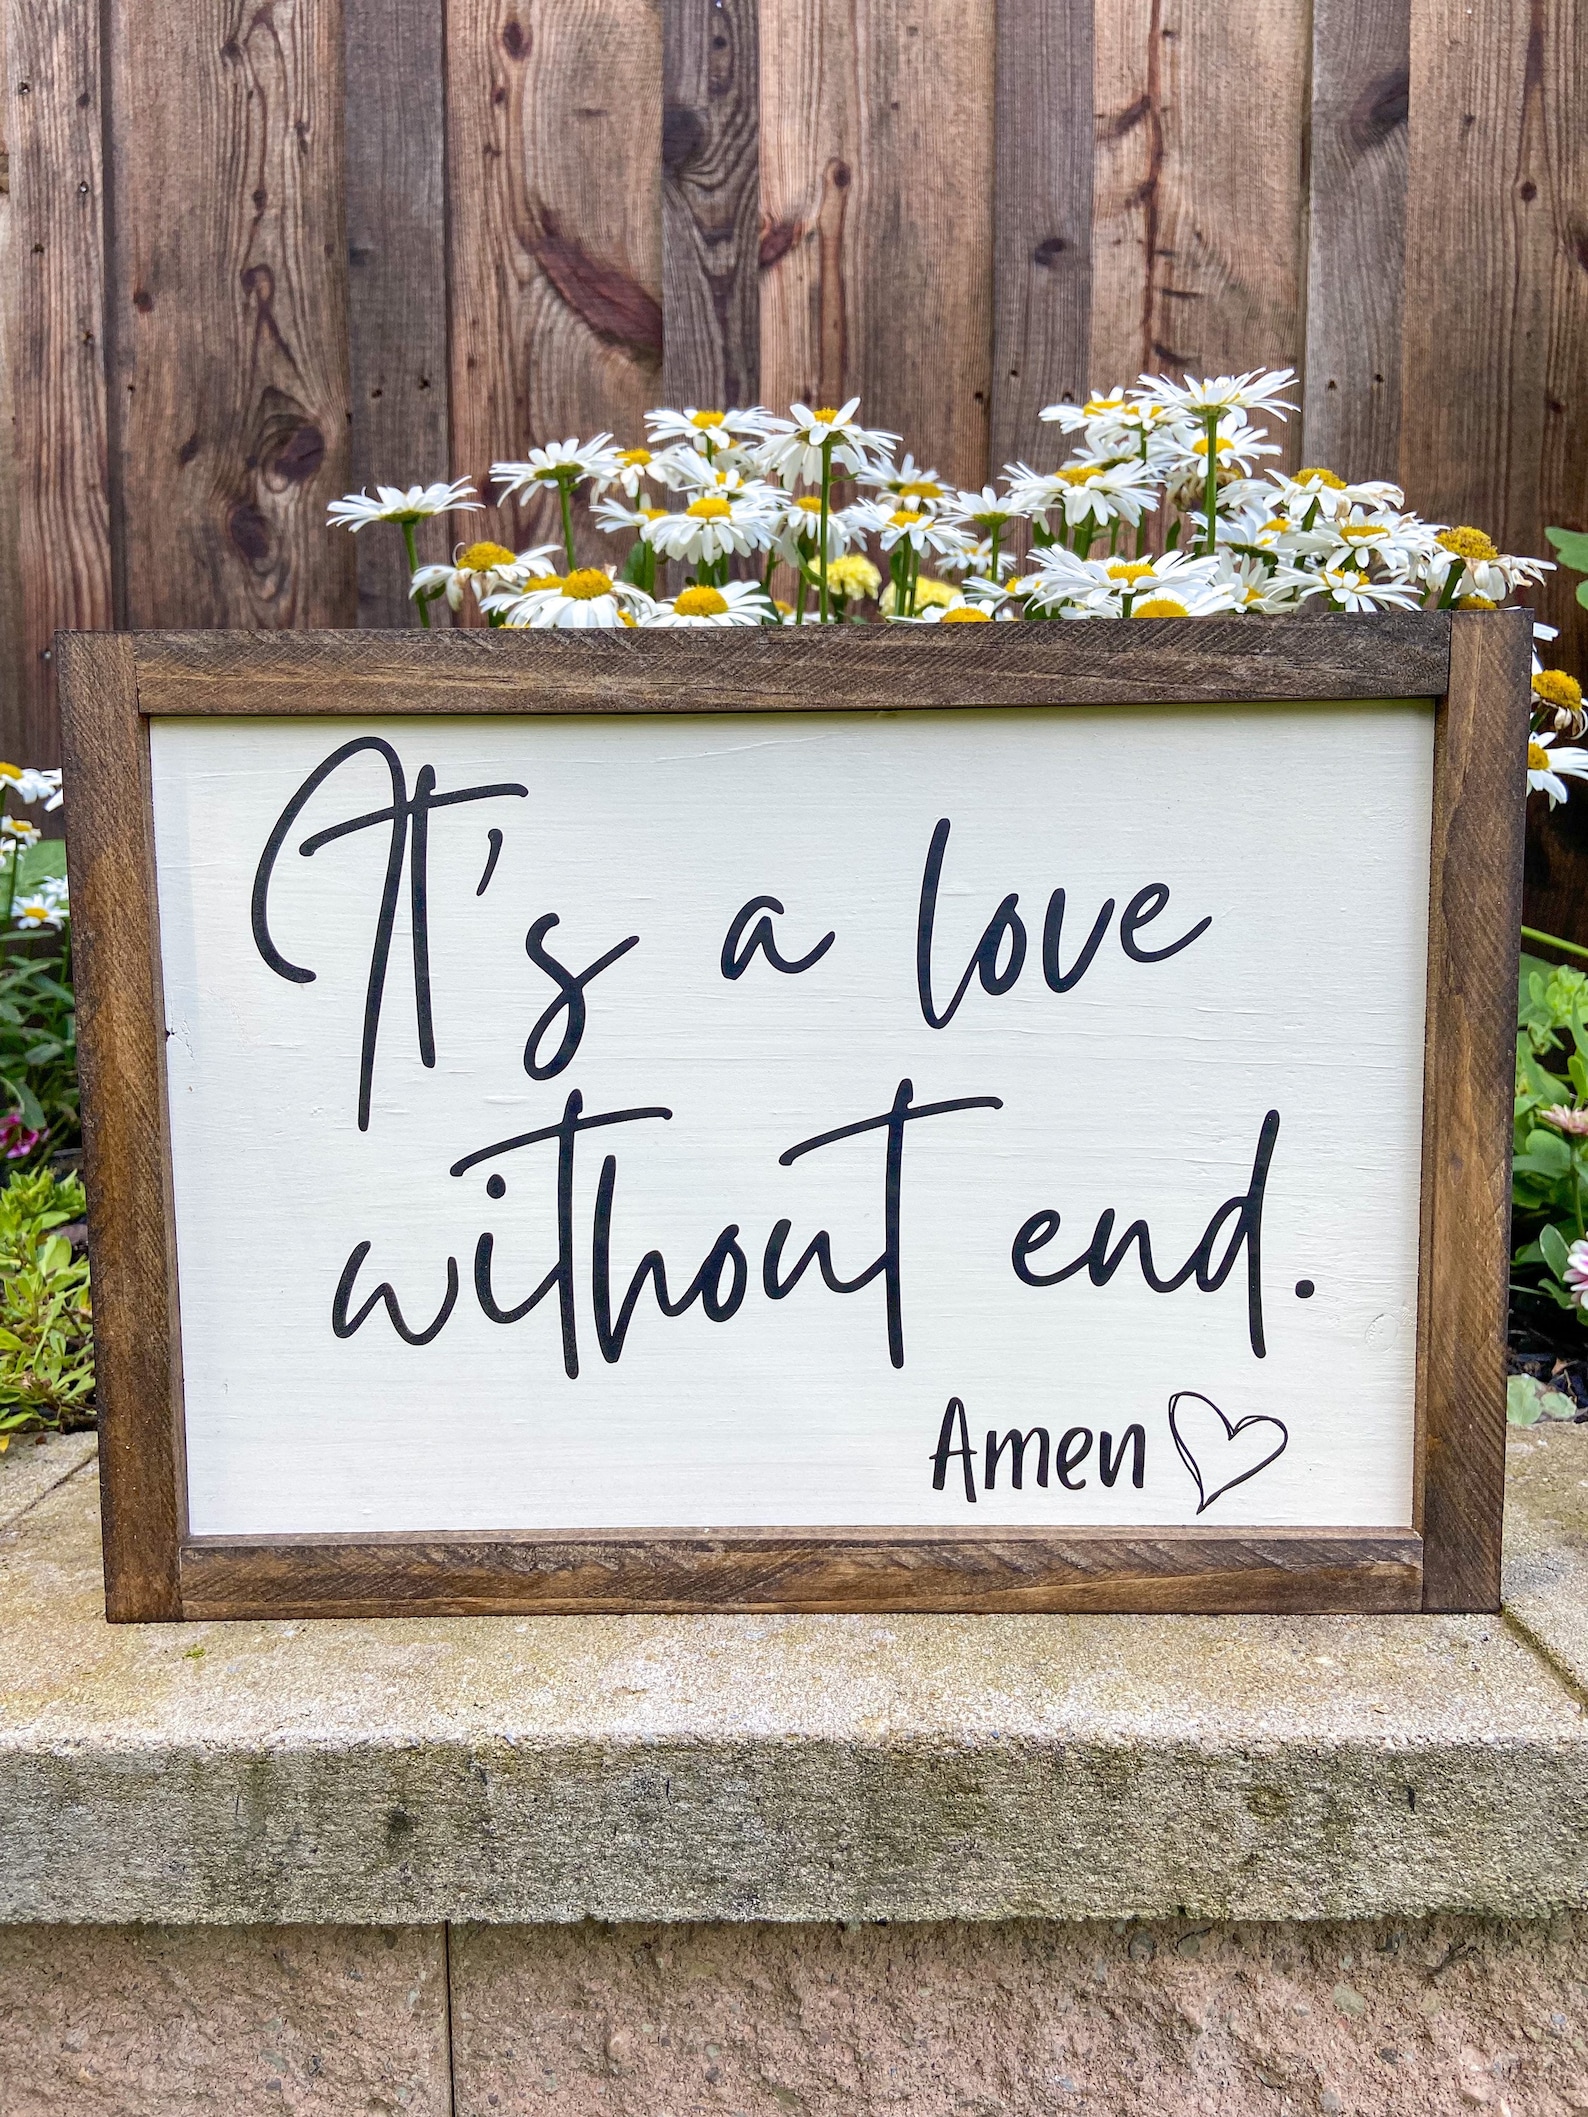 It's a love
without end.
Amen